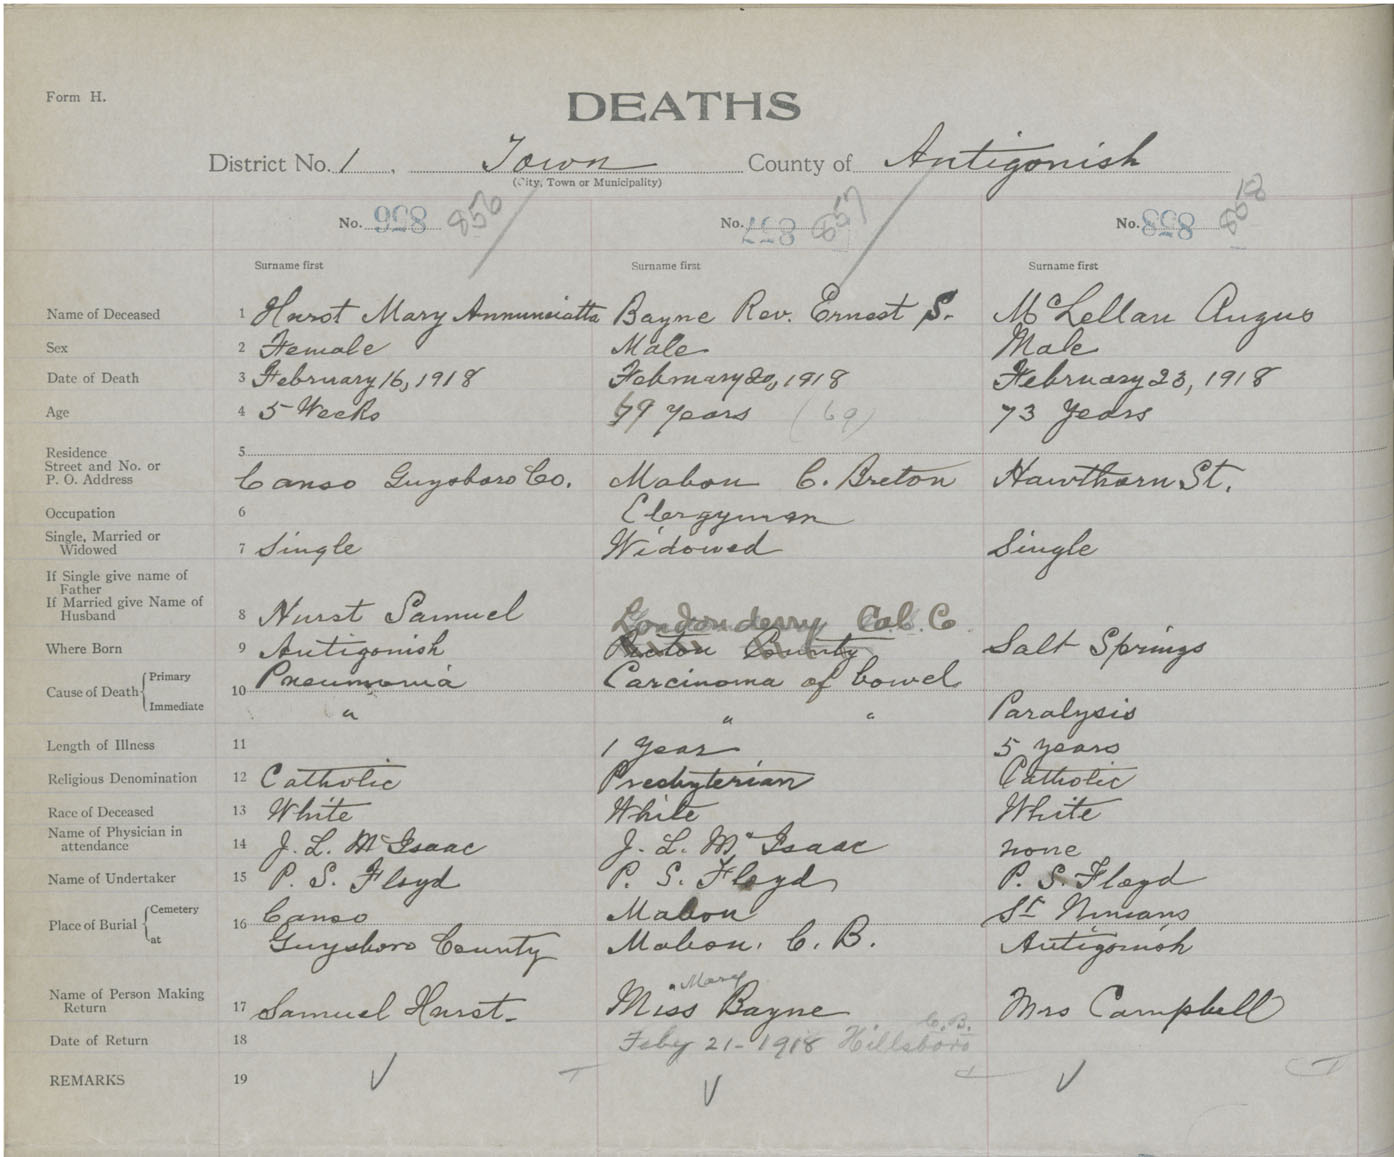 Form H.
DEATHS
District No. 1, Town County of Antigonish
(City, Town or Municipality)
No. 856 856 No. 857 857 No. 858 858
Surname first Surname first Surname first
Name of Deceased 1 Hurst Mary Annunciatta Bayne Rev. Ernest S. McLellan Angus
Sex 2 Female Male Male
Date of Death 3 February 16, 1918 February 20, 1918 February 23, 1918
Age 4 5 Weeks 79 years (69) 73 years
Residence 5
Street and No. or
P. O. Address Canso Guysboro Co. Mabou C. Breton Hawthorn St.
Occupation 6 Clergyman
Single, Married or
Widowed 7 Single Widowed Single
If Single give name of
Father
If Married give Name of
Husband 8 Hurst Samuel Londonderry Col. Co
Where Born 9 Antigonish Pictou County Salt Springs
Cause of Death Primary 10 Pneumonia Carcinoma of bowel
Immediate " " " Paralysis
Length of Illness 11 1 Year 5 years
Religious Denomination 12 Catholic Presbyterian Catholic
Race of Deceased 13 White White White
Name of Physician in
attendance 14 J. L. McIsaac J. L. McIsaac none
Name of Undertaker 15 P. S. Floyd P. S. Floyd P. S. Floyd
Place of Burial Cemetery 16 Canso Mabou St Ninians
at Guysboro County Mabou, C. B. Antigonish
Mary
Name of Person Making
Return 17 Samuel Hurst Miss Bayne Mrs Campbell
C. B.
Date of Return 18 Feby 21-1918 Hillsboro
REMARKS 19